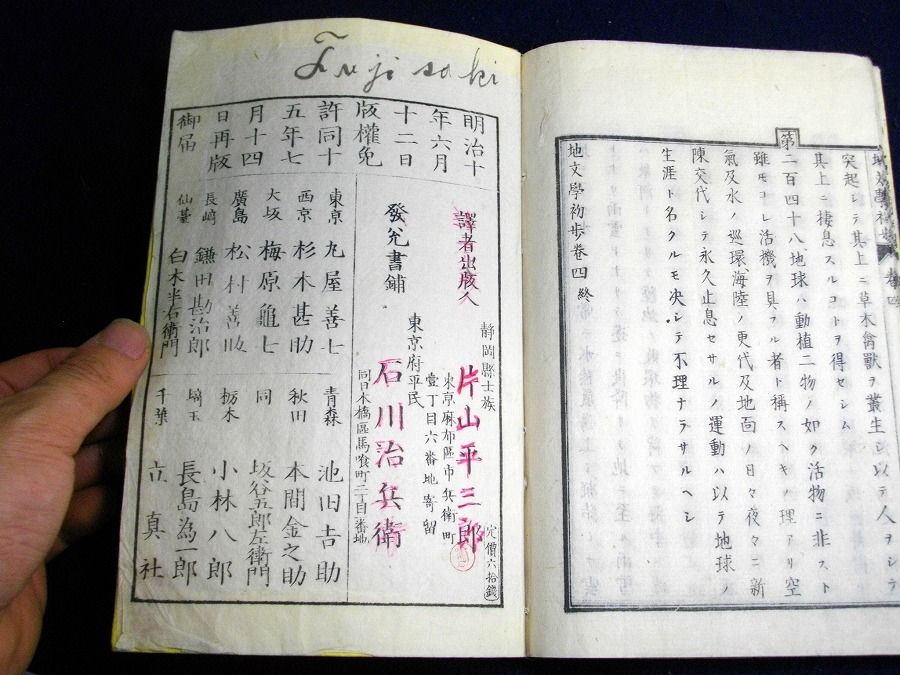 地文學初歩 卷四
突起シテ其上ニ草木禽獸ヲ叢生シ以テ人ヲシテ
其上ニ棲息スルコトヲ得セシム
第二百四十八地球ハ動植二物ノ如ク活物ニ非スト
雖モコレ活機ヲ具フル者ト稱スヘキノ理アリ空
氣及水ノ巡環海陸ノ更代及地面ノ日々夜々ニ新
陳交代シテ永久止息セサルノ運動ハ以テ地球ノ
生涯ト名クルモ決シテ不理ナラサルヘシ
地文學初歩卷四終
Fujisaki
明治十
年六月
十二日
版權免
許同十
五年七
月十四
日再版
御届
譯者出版人
靜岡縣士族
東京麻布區市兵衛町
壹丁目六番地寄留
片山平三郎
定價六拾錢
發兌書鋪
東京府平民
同日本橋區馬喰町二丁目一番地
石川治兵衛
東京 丸屋善七
西京 杉本甚助
大坂 梅原龜七
廣島 松村善助
長崎 鎌田勘治郎
仙臺 白木半右衛門
青森 池田吉助
秋田 本間金之助
同 坂谷五郎左衛門
栃木 小林八郎
埼玉 長島為一郎
千葉 立真社